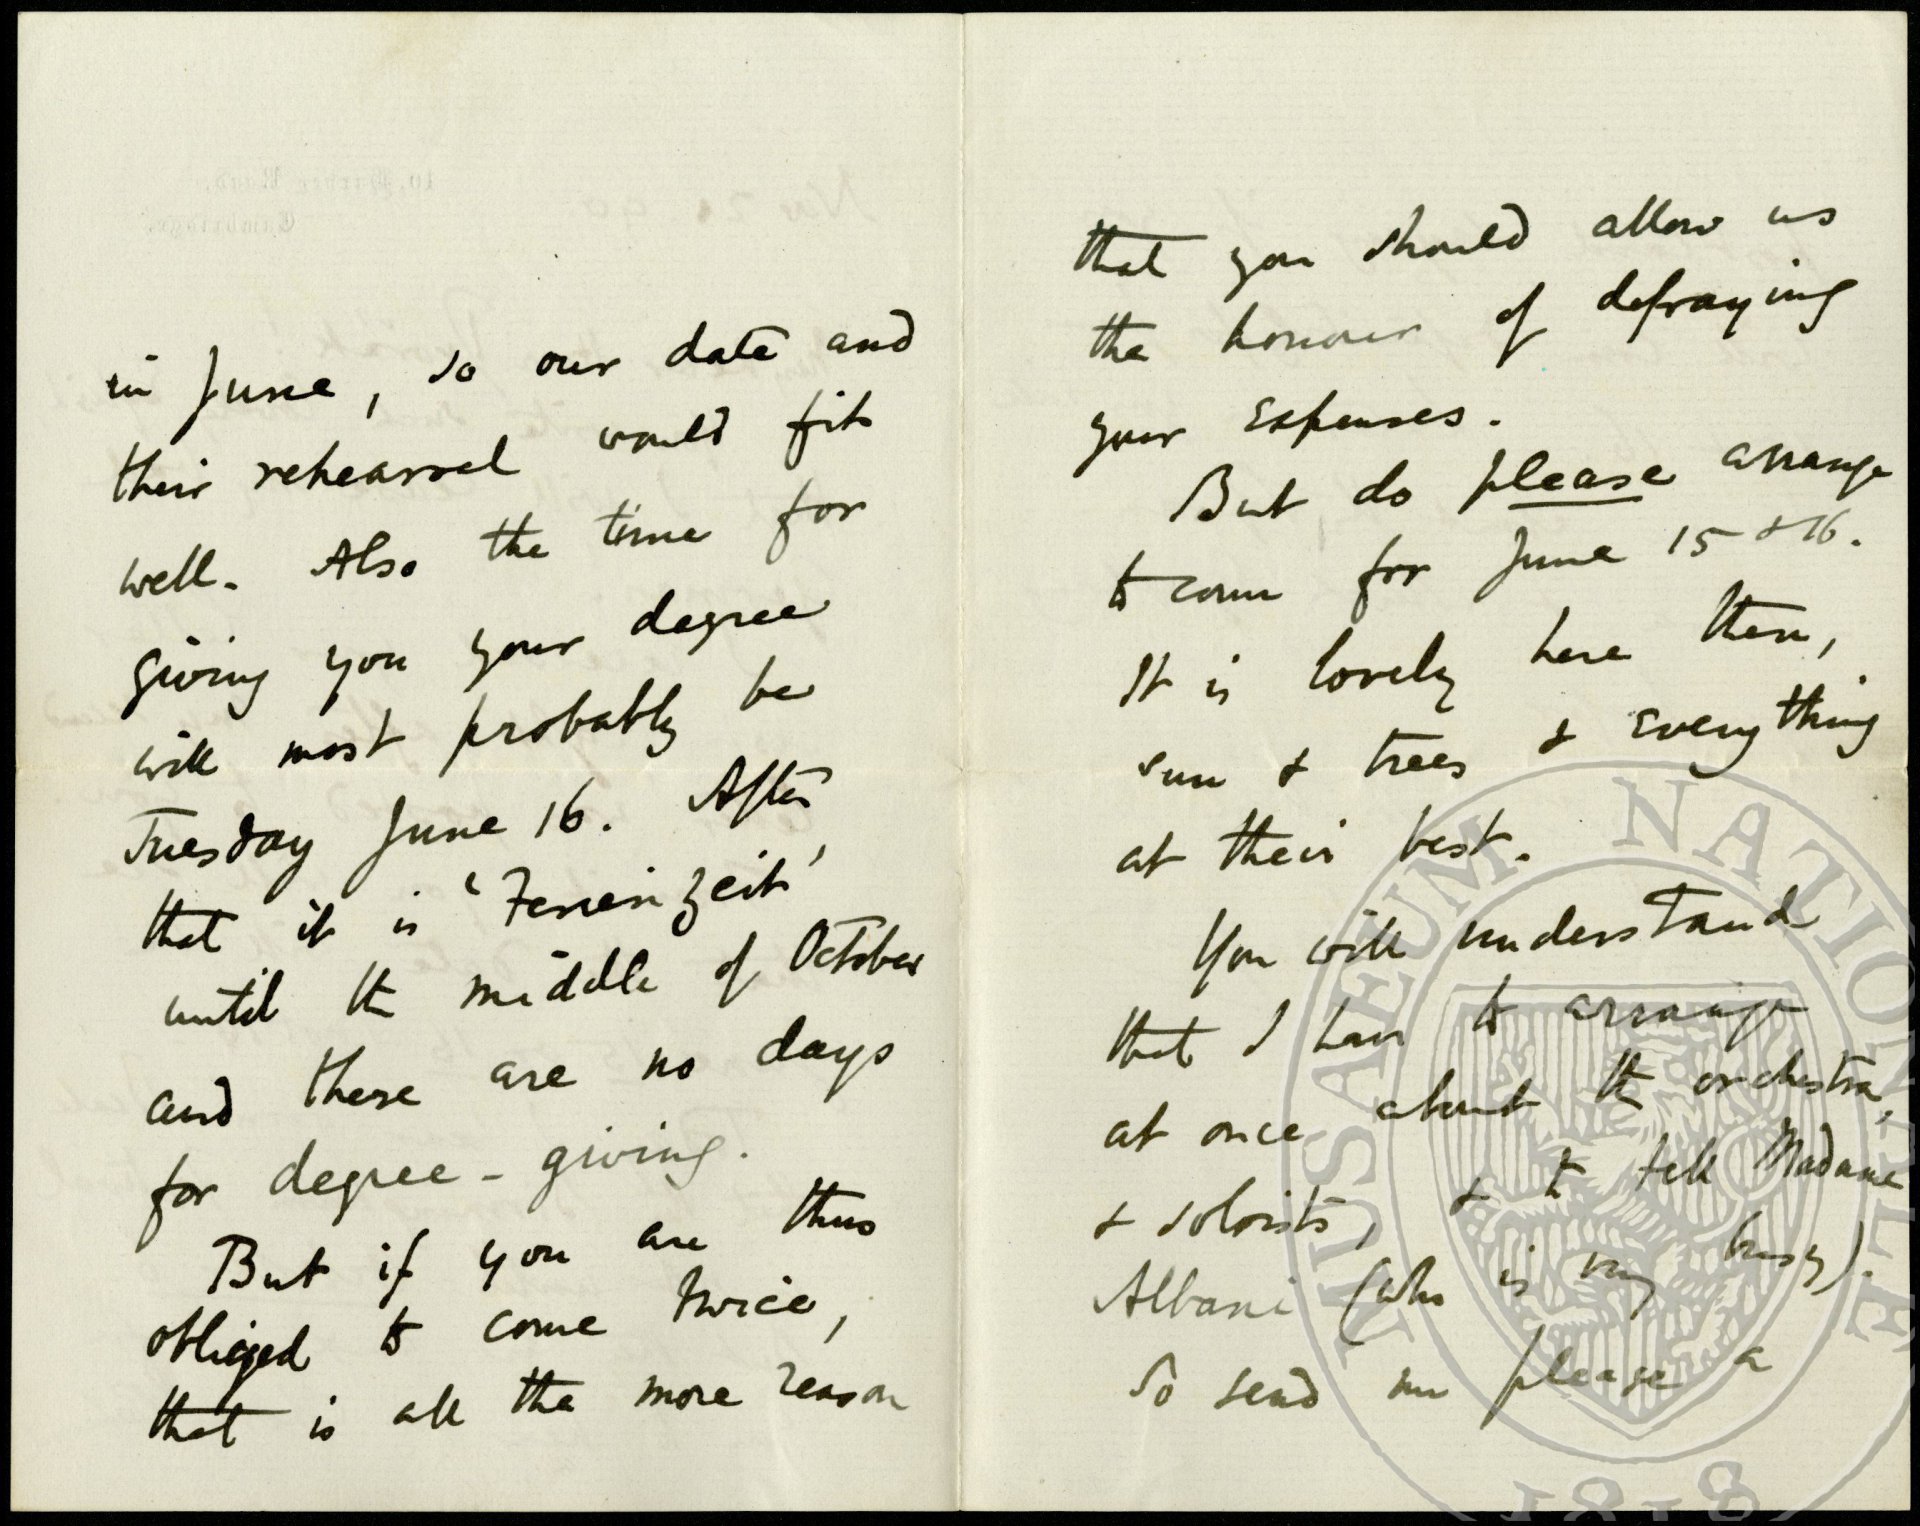 in June, so our date and
their rehearsal would fit
well. Also the time for
giving you your degree
will most probably be
Tuesday June 16. After
that it is 'Ferienzeit'
until the middle of October
and there are no days
for degree-giving.
But if you are thus
obliged to come twice,
that is all the more reason
that you should allow us
the honour of defraying
your expenses.
But do please arrange
to come for June 15 & 16.
It is lovely here then,
sun & trees & everything
at their best.
You will understand
that I have to arrange
at once about the orchestra,
& soloists, & to tell Madame
Albani (who is very busy).
So send me please a
MUSAEUM NATIONALE
1818